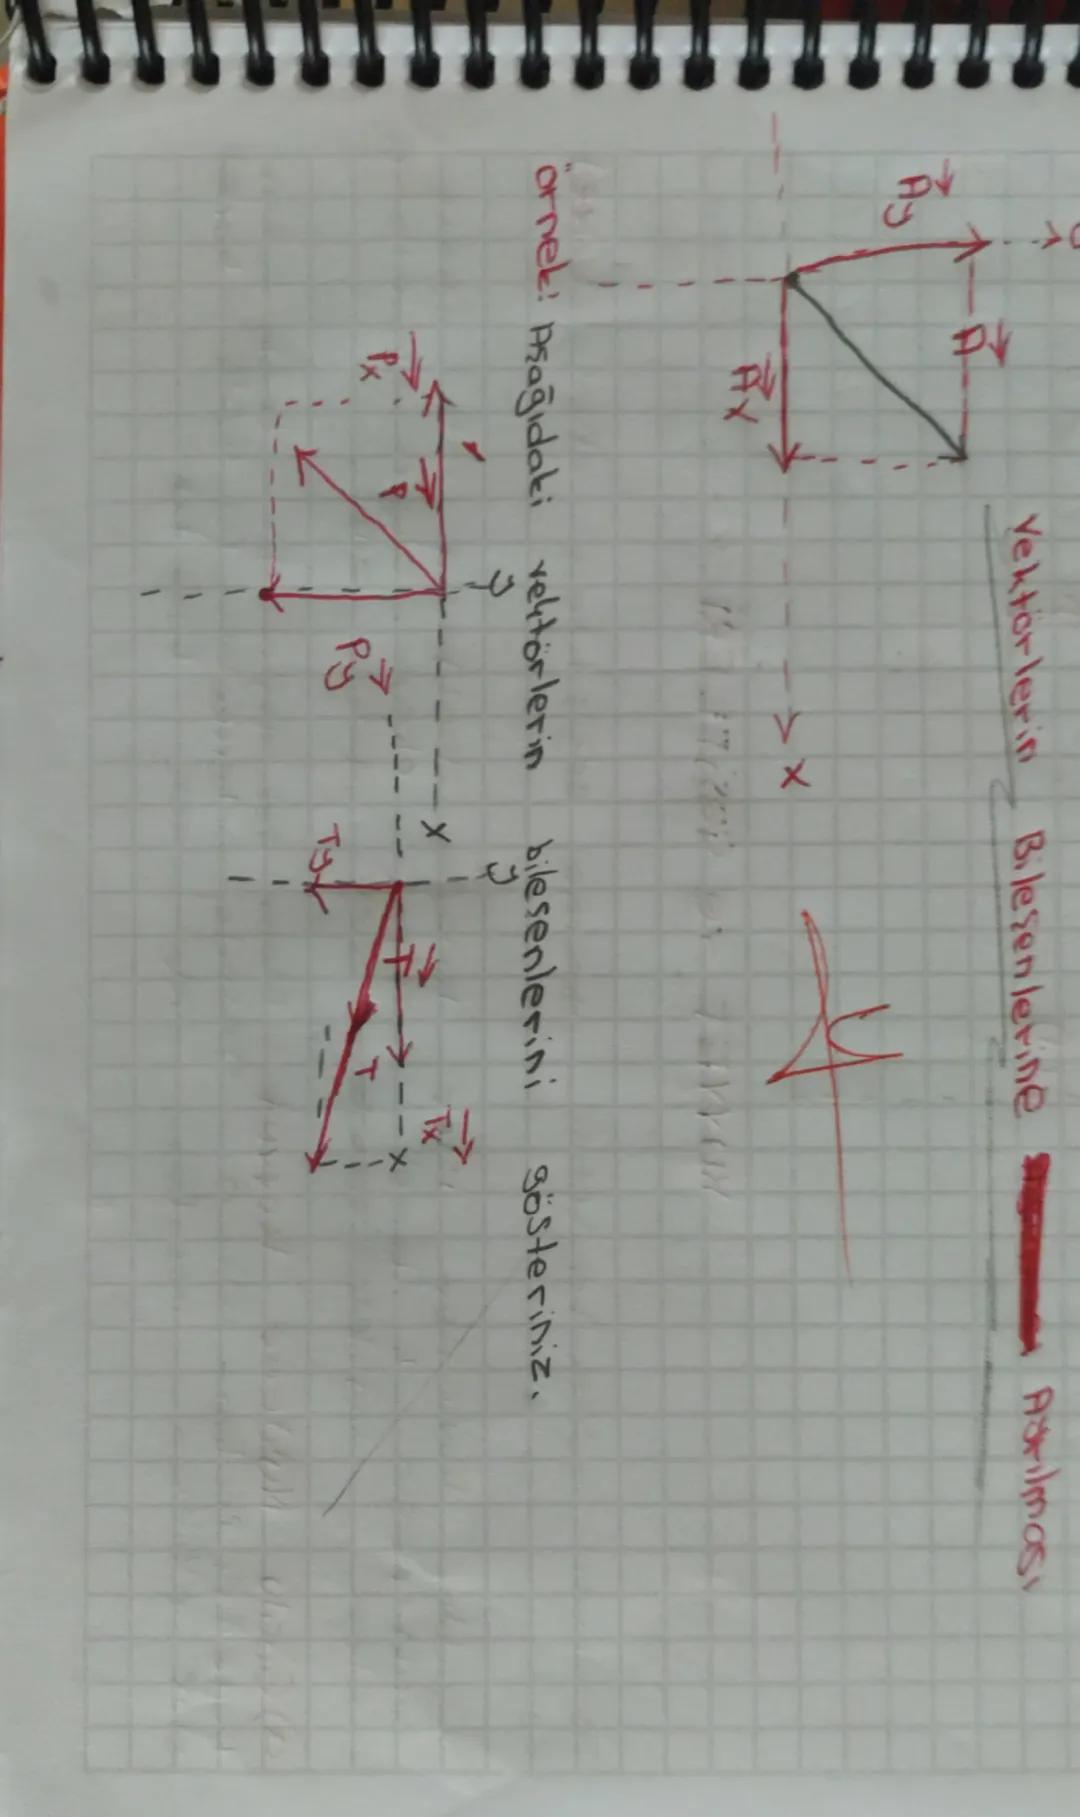 Vektörlerin Bileşenlerine Ayrılması
y
Ay
A
Ax
x
Örnek: Aşağıdaki vektörlerin bileşenlerini gösteriniz.
y
Px
P
x
Py
y
T
Tx
x
T
Ty